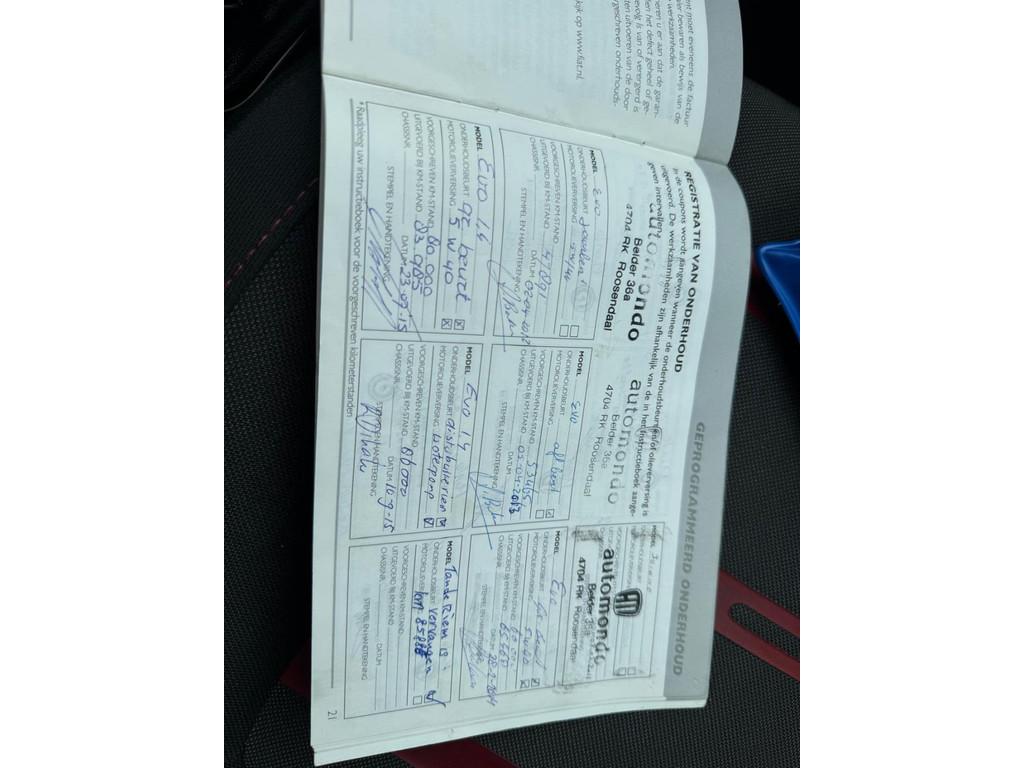 ent moet eveneens de factuur
ver bewaren als bewijs van de
werkzaamheden.
neren u er aan dat de garan-
en het defect geheel of ge-
evolg is van of verergerd is
ten uitvoeren van de door
geschreven onderhouds-
kijk op www.fiat.nl.
GEPROGRAMMEERD ONDERHOUD
REGISTRATIE VAN ONDERHOUD
In de coupons wordt aangegeven wanneer de onderhoudsbeurt en/of olieverversing is
uitgevoerd. De werkzaamheden zijn afhankelijk van de in het Instructieboek aange-
geven intervallen.
automondo
Belder 36a
4704 RK Roosendaal
MODEL Evo
ONDERHOUDSBEURT
MOTOROLIEVERVERSING 5W40
VOORGESCHREVEN KM-STAND
UITGEVOERD BIJ KM-STAND 47091
CHASSISNR. DATUM 02-04-2012
STEMPEL EN HANDTEKENING
automondo
Belder 36a
4704 RK Roosendaal
MODEL EVO
ONDERHOUDSBEURT
MOTOROLIEVERVERSING
VOORGESCHREVEN KM-STAND
UITGEVOERD BIJ KM-STAND 53465
CHASSISNR. DATUM
STEMPEL EN HANDTEKENING
automondo
Belder 36a
4704 RK Roosendaal
MODEL Evo
ONDERHOUDSBEURT
MOTOROLIEVERVERSING 5W40
VOORGESCHREVEN KM-STAND
UITGEVOERD BIJ KM-STAND
CHASSISNR. DATUM
STEMPEL EN HANDTEKENING
MODEL Evo 1.4
ONDERHOUDSBEURT gr beurt
MOTOROLIEVERVERSING 5 W 40
VOORGESCHREVEN KM-STAND 80.000
UITGEVOERD BIJ KM-STAND 83.985
CHASSISNR. DATUM 23-07-15
STEMPEL EN HANDTEKENING
MODEL Evo 1.4
ONDERHOUDSBEURT distributieriem
MOTOROLIEVERVERSING waterpomp
VOORGESCHREVEN KM-STAND
UITGEVOERD BIJ KM-STAND
CHASSISNR. DATUM 10-9-15
STEMPEL EN HANDTEKENING
MODEL Tande Riem is
ONDERHOUDSBEURT vervangen
MOTOROLIEVERVERSING km
VOORGESCHREVEN KM-STAND
UITGEVOERD BIJ KM-STAND
CHASSISNR. DATUM
STEMPEL EN HANDTEKENING
* Raadpleeg uw instructieboek voor de voorgeschreven kilometerstanden
21